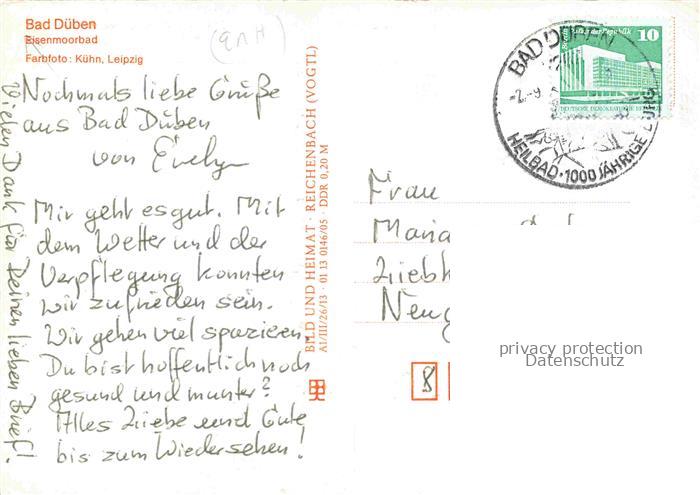 Bad Düben
Eisenmoorbad
Farbfoto: Kühn, Leipzig
Nochmals liebe Grüße
aus Bad Düben
von Evelyn
Mir geht es gut. Mit
dem Wetter und der
Verpflegung konnten
wir zufrieden sein.
Wir gehen viel spazieren.
Du bist hoffentlich noch
gesund und munter?
Alles Liebe und Gute
bis zum Wiedersehen!
Vielen Dank für Deinen lieben Brief!
BILD UND HEIMAT · REICHENBACH (VOGTL)
A1/III/26/13 · 01 13 0146/05 · DDR 0,20 M
10
DEUTSCHE DEMOKRATISCHE
BAD DÜBEN
HEILBAD · 1000 JÄHRIGE BURG
Frau
8
privacy protection
Datenschutz